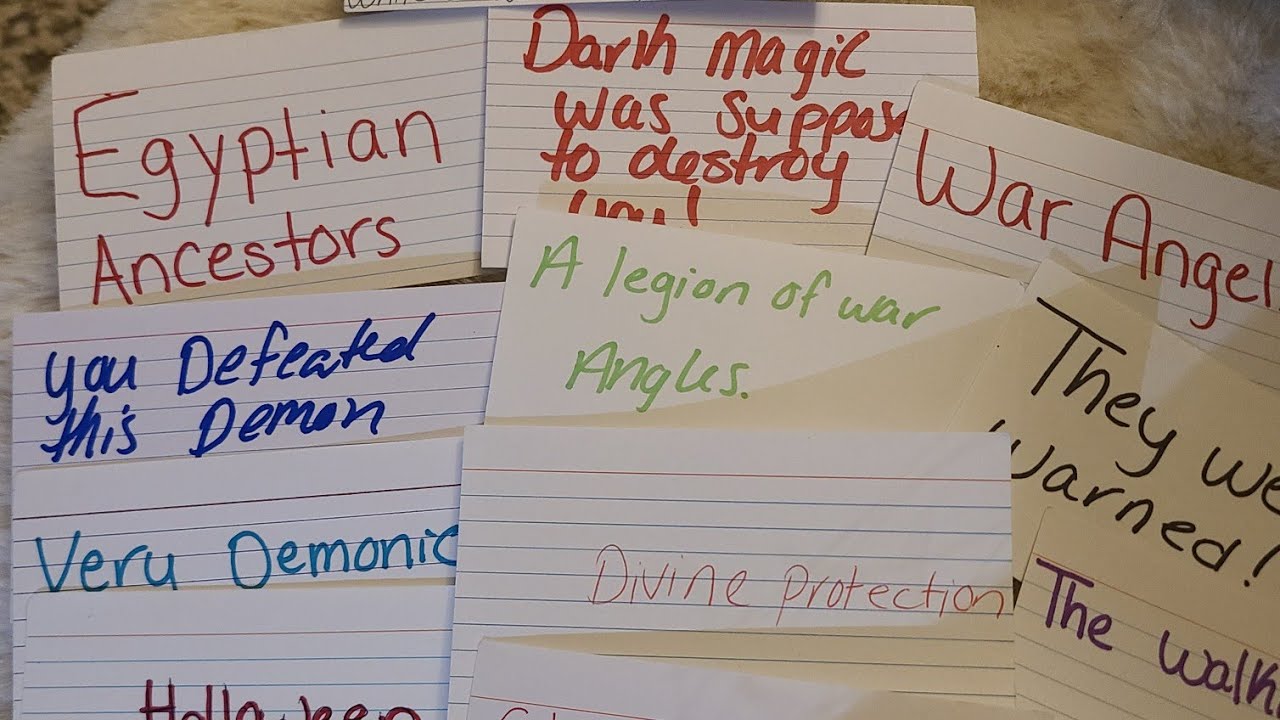 Egyptian
Ancestors
Dark magic
was suppose
to destroy
you!
War Angel
you Defeated
this Demon
A legion of war
Angles.
They we
warned!
Very Demonic
Divine protection
The walk
Halloween